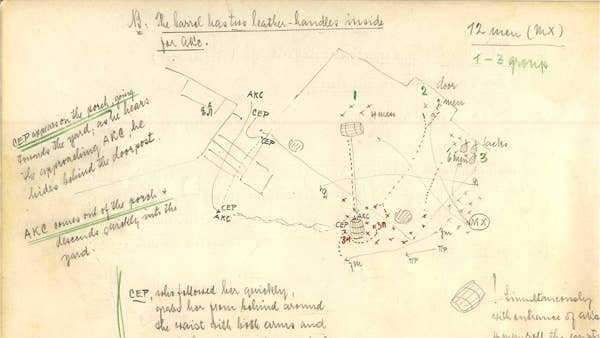 NB: The barrel has two leather-handles inside
for AKC.
12 men (MX)
1-3 group
СЕР appears on the porch, going
towards the yard; as he hears
the approaching AKC, he
hides behind the doorpost.
AKC comes out of the porch &
descends quickly into the
yard.
AKC
СЕР
СЕР
СЕР
AKC
1
4 men
2
door
2 men
sacks
6 men
3
MX
СЕР
AKC
ЗП
ЗП
gm
gm
пр
пр
СЕР, who followed her quickly,
grabs her from behind around
the waist with both arms and
! Simultaneously
with entrance of AKC
4 men roll the